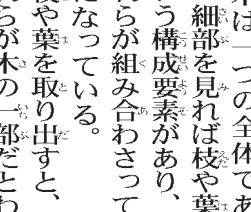 木は一つの全体であ
細部を見れば枝や葉
う構成要素があり、
らが組み合わさって
になっている。
や葉を取り出すと、
らが木の一部だとわ